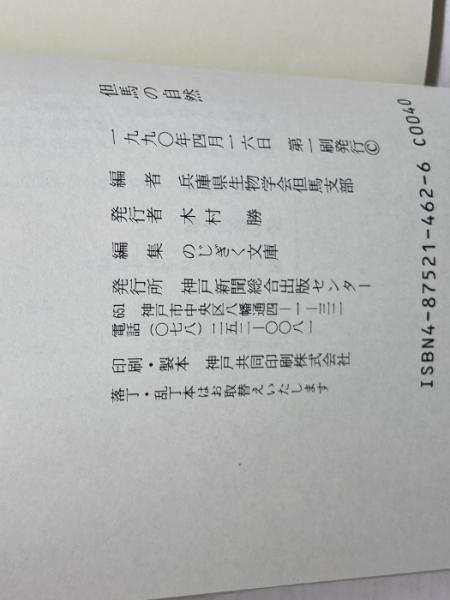 但馬の自然
一九九〇年四月一六日 第一刷発行©
編者 兵庫県生物学会但馬支部
発行者 木村 勝
編集 のじぎく文庫
発行所 神戸新聞総合出版センター
651 神戸市中央区八幡通四―一―三二
電話(〇七八)二五二―〇〇八一
印刷・製本 神戸共同印刷株式会社
落丁・乱丁本はお取替えいたします
ISBN4-87521-462-6 C0040